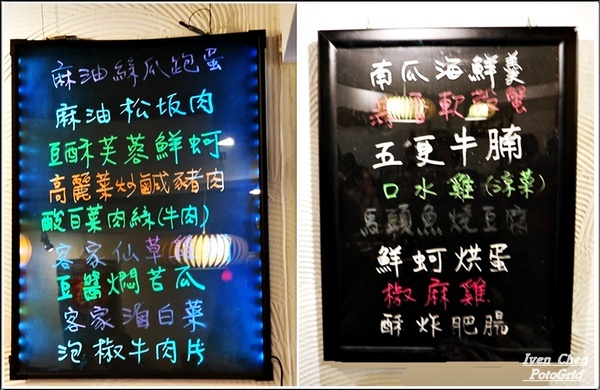 麻油絲瓜跑蛋
麻油松坂肉
豆酥芙蓉鮮蚵
高麗菜炒鹹豬肉
酸白菜肉絲(牛肉)
客家仙草
豆醬燜苦瓜
客家滷白菜
泡椒牛肉片
南瓜海鮮羹
軟殼蟹
五更牛腩
口水雞(涼菜)
馬頭魚燒豆腐
鮮蚵烘蛋
椒麻雞
酥炸肥腸
Iven Chen
PotoGrid